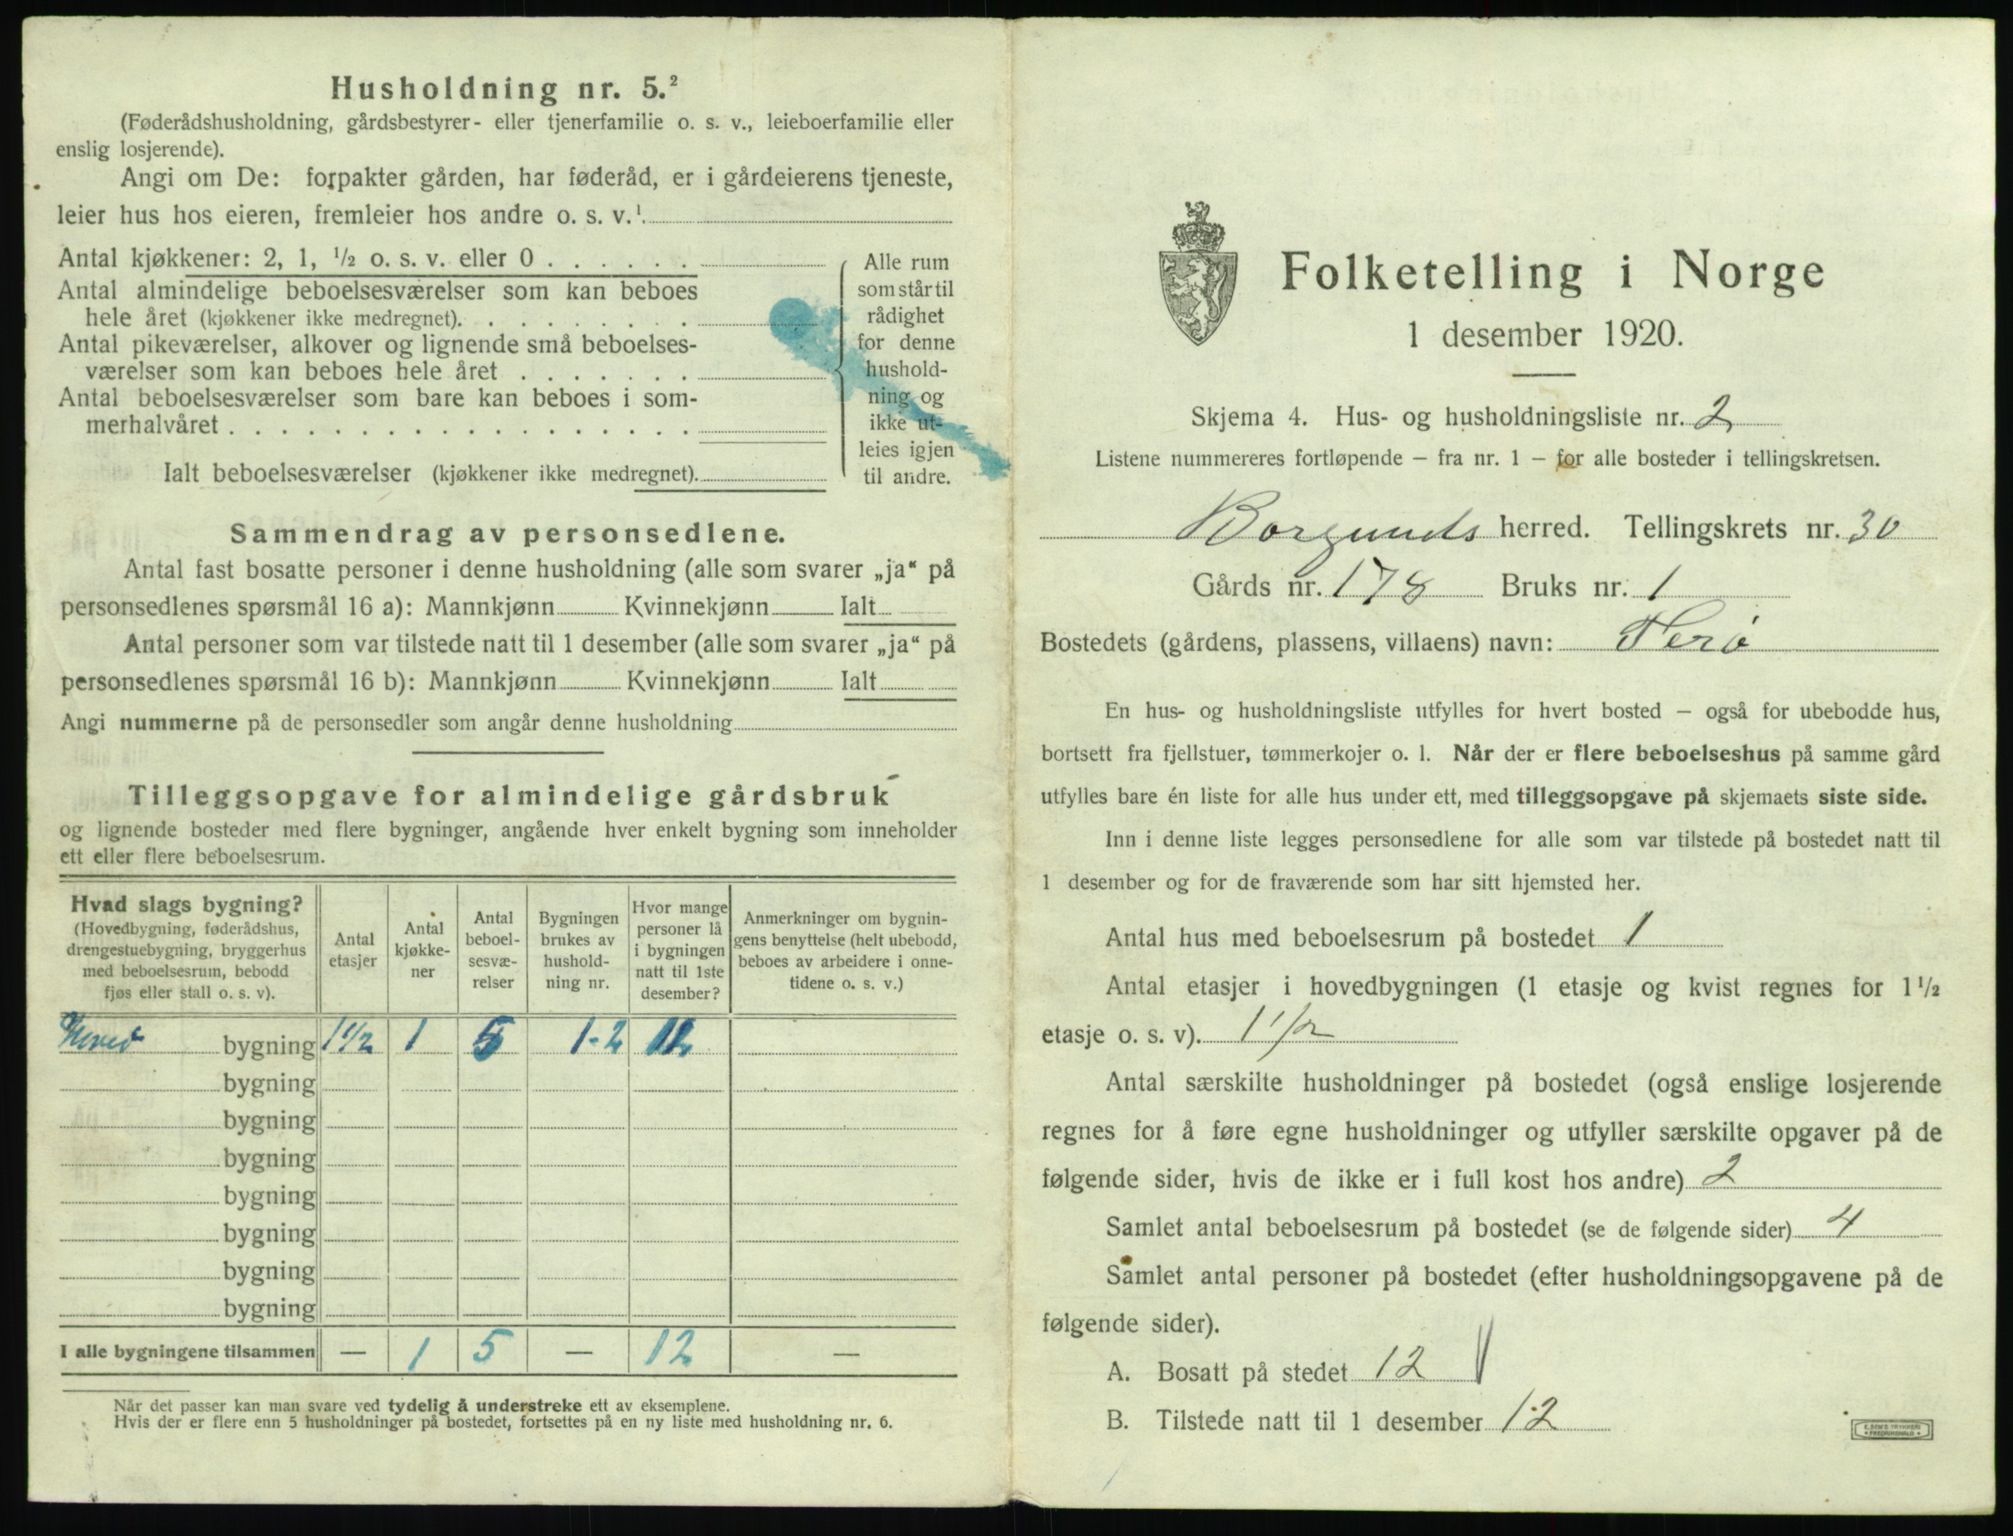 Husholdning nr. 5.²
(Føderådshusholdning, gårdsbestyrer- eller tjenerfamilie o. s. v., leieboerfamilie eller
enslig losjerende).
Angi om De: forpakter gården, har føderåd, er i gårdeierens tjeneste,
leier hus hos eieren, fremleier hos andre o. s. v.¹
Antal kjøkkener: 2, 1, ½ o. s. v. eller 0 . . . . . .
Antal almindelige beboelsesværelser som kan beboes
hele året (kjøkkener ikke medregnet). . . . . . . . .
Antal pikeværelser, alkover og lignende små beboelses-
værelser som kan beboes hele året . . . . . . .
Antal beboelsesværelser som bare kan beboes i som-
merhalvåret . . . . . . . . . . . . . . . . . .
Ialt beboelsesværelser (kjøkkener ikke medregnet).
Alle rum
som står til
rådighet
for denne
hushold-
ning og
ikke ut-
leies igjen
til andre.
Sammendrag av personsedlene.
Antal fast bosatte personer i denne husholdning (alle som svarer „ja“ på
personsedlenes spørsmål 16 a): Mannkjønn Kvinnekjønn Ialt
Antal personer som var tilstede natt til 1 desember (alle som svarer „ja“ på
personsedlenes spørsmål 16 b): Mannkjønn Kvinnekjønn Ialt
Angi nummerne på de personsedler som angår denne husholdning
Tilleggsopgave for almindelige gårdsbruk
og lignende bosteder med flere bygninger, angående hver enkelt bygning som inneholder
ett eller flere beboelsesrum.
Hvad slags bygning?
(Hovedbygning, føderådshus,
drengestuebygning, bryggerhus
med beboelsesrum, bebodd
fjøs eller stall o. s. v).
Antal
etasjer
Antal
kjøkke-
ner
Antal
beboel-
sesvæ-
relser
Bygningen
brukes av
hushold-
ning nr.
Hvor mange
personer lå
i bygningen
natt til 1ste
desember?
Anmerkninger om bygnin-
gens benyttelse (helt ubebodd,
beboes av arbeidere i onne-
tidene o. s. v.)
Hoved bygning 1½ 1 5 1-2 12
bygning
bygning
bygning
bygning
bygning
bygning
bygning
I alle bygningene tilsammen — 1 5 — 12 —
Når det passer kan man svare ved tydelig å understreke ett av eksemplene.
Hvis der er flere enn 5 husholdninger på bostedet, fortsettes på en ny liste med husholdning nr. 6.
Folketelling i Norge
1 desember 1920.
Skjema 4. Hus- og husholdningsliste nr. 2
Listene nummereres fortløpende — fra nr. 1 — for alle bosteder i tellingskretsen.
Borgunds herred. Tellingskrets nr. 30
Gårds nr. 178 Bruks nr. 1
Bostedets (gårdens, plassens, villaens) navn: Herö
En hus- og husholdningsliste utfylles for hvert bosted — også for ubebodde hus,
bortsett fra fjellstuer, tømmerkojer o. l. Når der er flere beboelseshus på samme gård
utfylles bare én liste for alle hus under ett, med tilleggsopgave på skjemaets siste side.
Inn i denne liste legges personsedlene for alle som var tilstede på bostedet natt til
1 desember og for de fraværende som har sitt hjemsted her.
Antal hus med beboelsesrum på bostedet 1
Antal etasjer i hovedbygningen (1 etasje og kvist regnes for 1½
etasje o. s. v). 1½
Antal særskilte husholdninger på bostedet (også enslige losjerende
regnes for å føre egne husholdninger og utfyller særskilte opgaver på de
følgende sider, hvis de ikke er i full kost hos andre) 2
Samlet antal beboelsesrum på bostedet (se de følgende sider) 4
Samlet antal personer på bostedet (efter husholdningsopgavene på de
følgende sider).
A. Bosatt på stedet 12
B. Tilstede natt til 1 desember 12